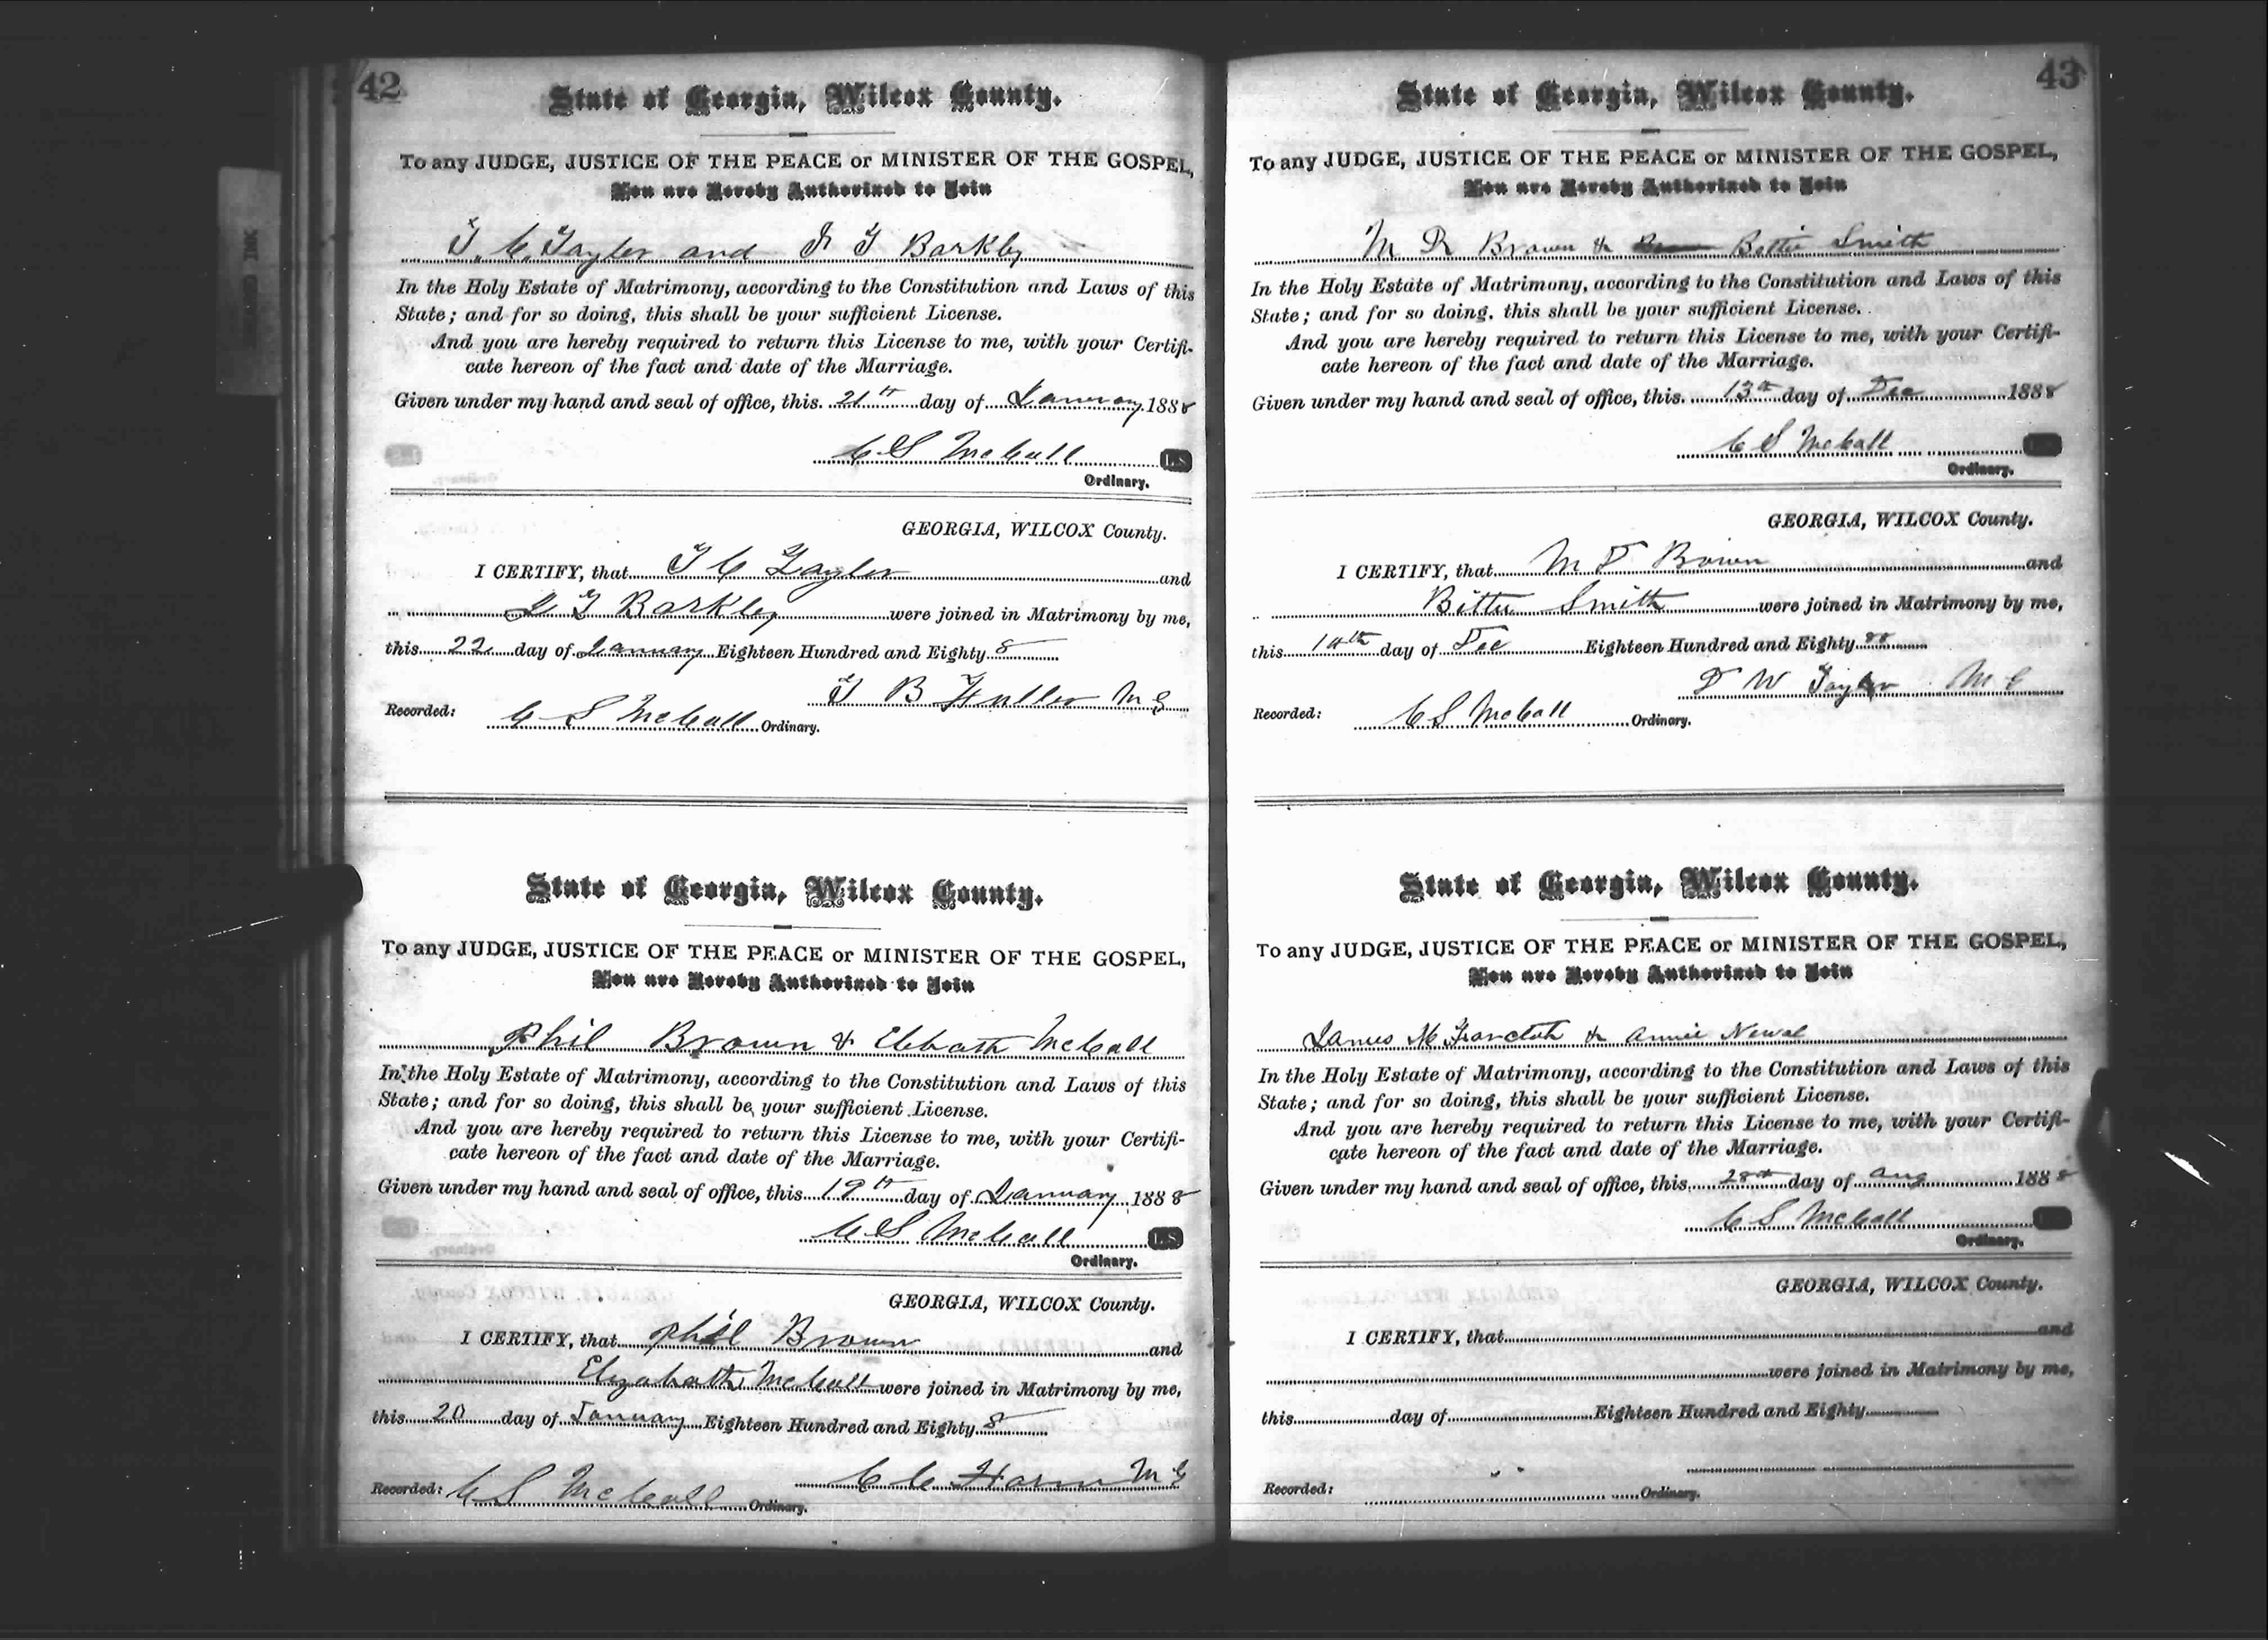 42
State of Georgia, Wilcox County.
To any JUDGE, JUSTICE OF THE PEACE or MINISTER OF THE GOSPEL,
You are Hereby Authorized to Join
T. C. Tayler and T Barkley
In the Holy Estate of Matrimony, according to the Constitution and Laws of this
State; and for so doing, this shall be your sufficient License.
And you are hereby required to return this License to me, with your Certifi-
cate hereon of the fact and date of the Marriage.
Given under my hand and seal of office, this 21th day of January 1888
C S McCall L.S
Ordinary.
GEORGIA, WILCOX County.
I CERTIFY, that T C Tayler and
T Barkley were joined in Matrimony by me,
this 22 day of January Eighteen Hundred and Eighty 8
T B Fuller M G
Recorded: C S McCall Ordinary.
State of Georgia, Wilcox County.
To any JUDGE, JUSTICE OF THE PEACE or MINISTER OF THE GOSPEL,
You are Hereby Authorized to Join
Phil Brown & McCall
In the Holy Estate of Matrimony, according to the Constitution and Laws of this
State; and for so doing, this shall be your sufficient License.
And you are hereby required to return this License to me, with your Certifi-
cate hereon of the fact and date of the Marriage.
Given under my hand and seal of office, this 19th day of January 1888
C S McCall L.S
Ordinary.
GEORGIA, WILCOX County.
I CERTIFY, that Phil Brown and
Elizabath McCall were joined in Matrimony by me,
this 20 day of January Eighteen Hundred and Eighty 8
C C Horn M G
Recorded: C S McCall Ordinary.
43
State of Georgia, Wilcox County.
To any JUDGE, JUSTICE OF THE PEACE or MINISTER OF THE GOSPEL,
You are Hereby Authorized to Join
M R Brown & Bettie Smith
In the Holy Estate of Matrimony, according to the Constitution and Laws of this
State; and for so doing, this shall be your sufficient License.
And you are hereby required to return this License to me, with your Certifi-
cate hereon of the fact and date of the Marriage.
Given under my hand and seal of office, this 13th day of Dec 1888
C S McCall
Ordinary.
GEORGIA, WILCOX County.
I CERTIFY, that M Brown and
Bettie Smith were joined in Matrimony by me,
this 14th day of Dec Eighteen Hundred and Eighty 88
D W Taylor M G
Recorded: C S McCall Ordinary.
State of Georgia, Wilcox County.
To any JUDGE, JUSTICE OF THE PEACE or MINISTER OF THE GOSPEL,
You are Hereby Authorized to Join
James M & Annie Newal
In the Holy Estate of Matrimony, according to the Constitution and Laws of this
State; and for so doing, this shall be your sufficient License.
And you are hereby required to return this License to me, with your Certifi-
cate hereon of the fact and date of the Marriage.
Given under my hand and seal of office, this 28th day of Aug 1888
C S McCall
Ordinary.
GEORGIA, WILCOX County.
I CERTIFY, that and
were joined in Matrimony by me,
this day of Eighteen Hundred and Eighty
Recorded: Ordinary.